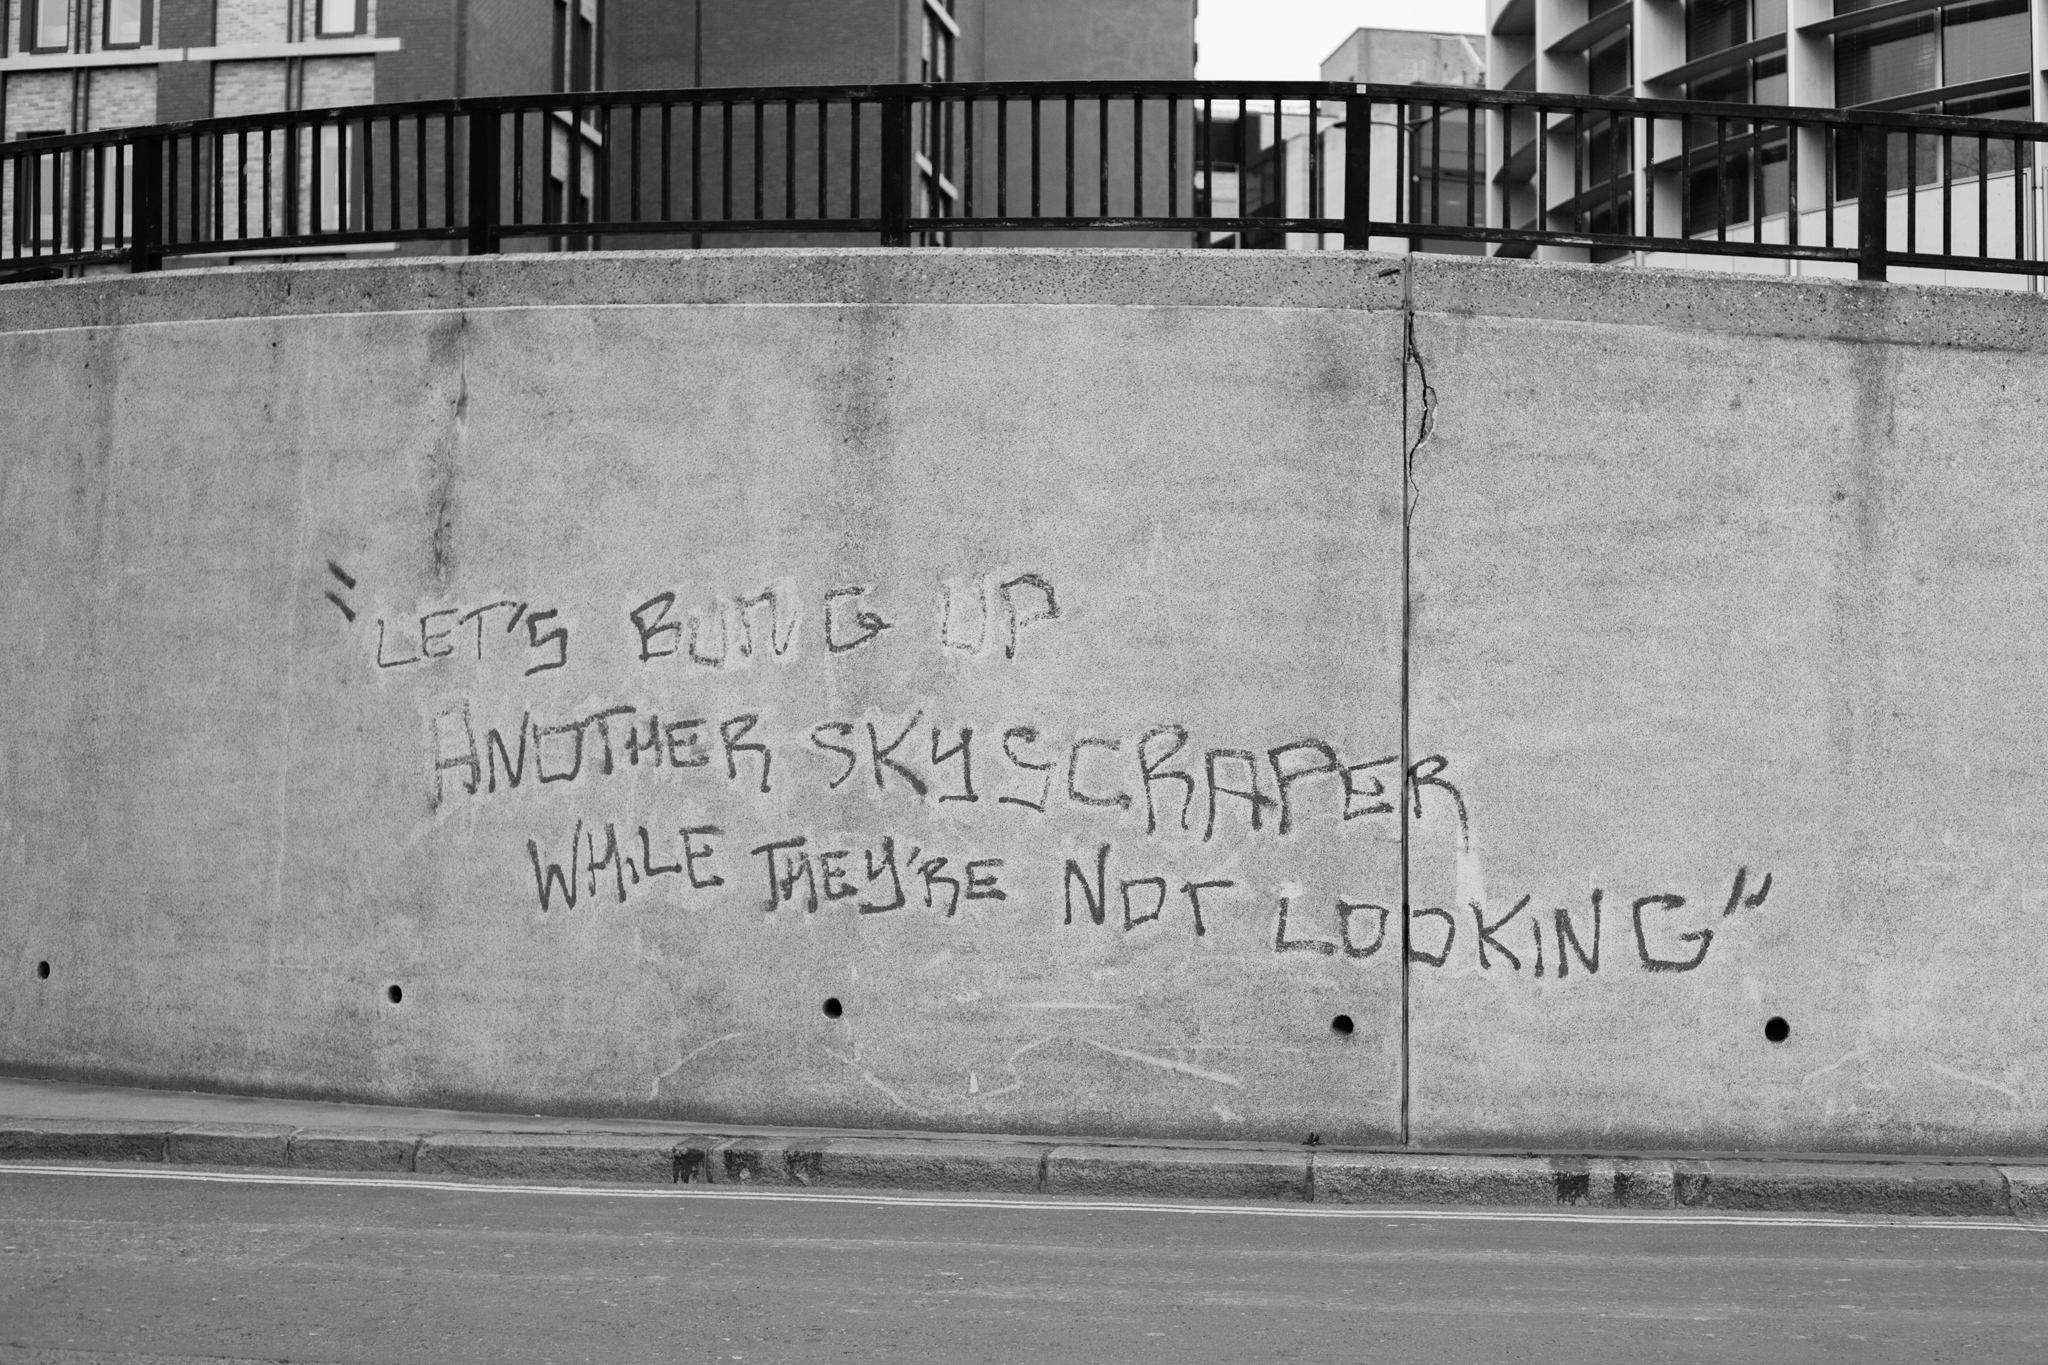 "LET'S BUNG UP
ANOTHER SKYSCRAPER
WHILE THEY'RE NOT LOOKING"